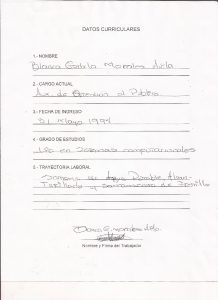 DATOS CURRICULARES
1.- NOMBRE
Blanca Morales Avila
2.- CARGO ACTUAL
Aux. de Atencion al Publico
3.- FECHA DE INGRESO
31 Mayo 1994
4.- GRADO DE ESTUDIOS
Lic. en Sistemas computacionales
5.- TRAYECTORIA LABORAL
de Agua Potable, Alcan-
tarillado y Saneamiento de
Nombre y Firma del Trabajador